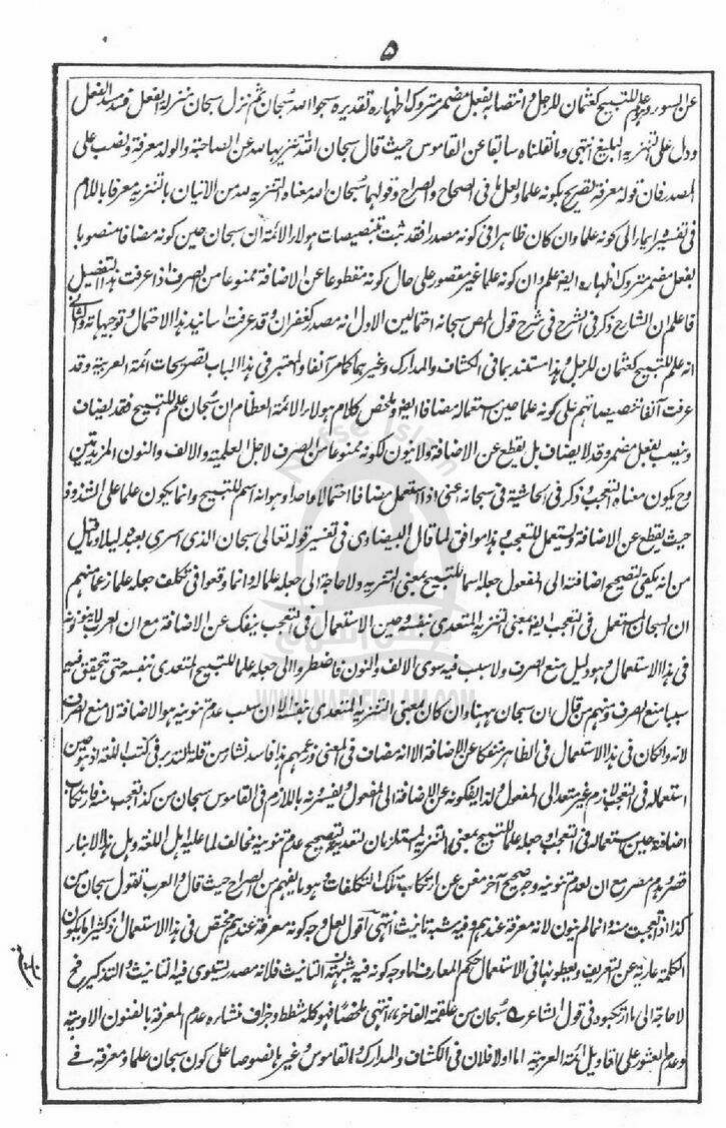 ۵
عن السوء وهو علم للتسبيح كعثمان للرجل وانتصابه بفعل مضمر متروك اظهاره تقديره سبحوا الله سبحان ثم نزل سبحان منزلة الفعل فسد مسد الفعل
ودل على التنزيه البليغ انتهى وما نقلناه سابقا عن القاموس حيث قال سبحان الله تنزيها لله عن الصاحبة والولد معرفة ونصب على
المصدر فان قوله معرفة تصريح بكونه علما ولعل ما فى الصحاح والصراح وقولهما سبحان الله معناه التنزيه لله من الاتيان بالتنزيه معرفا باللام
فى تفسيره ايماء الى كونه علما وان كان ظاهرا فى كونه مصدرا فقد ثبت بتنصيصات هؤلاء الائمة ان سبحان حين كونه مضافا منصوبا
بفعل مضمر متروك اظهاره ايضا علم وان كونه علما غير مقصور على حال كونه مقطوعا عن الاضافة ممنوعا من الصرف اذا عرفت هذا التفصيل
فاعلم ان الشارح ذكر فى الشرح فى شرح قول المص سبحانه احتمالين الاول انه مصدر كغفران وقد عرفت اسانيد هذا الاحتمال وتوجيهاته والثانى
انه علم للتسبيح كعثمان للرجل وهذا مستند بما فى الكشاف والمدارك وغيرهما كما مر آنفا والمعتبر فى هذا الباب تصريحات ائمة العربية وقد
عرفت آنفا تنصيصاتهم على كونه علما حين استعماله مضافا ايضا وملخص كلام هؤلاء الائمة العظام ان سبحان علم للتسبيح فقد يضاف
وينصب بفعل مضمر وقد لا يضاف بل يقطع عن الاضافة ولا ينون لكونه ممنوعا من الصرف لاجل العلمية والالف والنون المزيدتين
وح يكون معناه التعجب وذكر فى الحاشية فى سبحانه اعنى اذا استعمل مضافا احتمالا واحدا وهو انه اسم للتسبيح وانما يكون علما على الشذوذ
حيث يقطع عن الاضافة ويستعمل للتعجب وهذا موافق لما قال البيضاوى فى تفسير قوله تعالى سبحان الذى اسرى بعبده ليلا وما قيل
من انه يكفى لتصحيح اضافته الى المفعول جعله اسما للتسبيح بمعنى التنزيه ولا حاجة الى جعله علما له وانما وقعوا فى تكلف جعله علما زعما منهم
ان السبحان المستعمل فى التعجب ايضا بمعنى التنزيه المتعدى بنفسه وحين الاستعمال فى التعجب ينفك عن الاضافة مع ان العرب لا ينونونه
فى هذا الاستعمال وهو دليل منع الصرف ولا سبب فيه سوى الالف والنون فاضطروا الى جعله علما للتسبيح المتعدى بنفسه حتى تتحقق فيه
سببا منع الصرف ومنهم من قال ان سبحان ههنا وان كان بمعنى التنزيه المتعدى بنفسه الا ان سبب عدم تنوينه هو الاضافة لا منع الصرف
لانه وان كان فى هذا الاستعمال فى الظاهر منفكا عن الاضافة الا انه مضاف فى المعنى وزعمهم هذا فاسد نشأ من قلة التدبر فى كتب اللغة اذ هو حين
استعماله فى التعجب لازم غير متعد الى المفعول ولذا ينفكونه عن الاضافة الى المفعول ويفسرونه باللازم فى القاموس سبحان من كذا تعجب منه فارتكاب
اضافته حين استعماله فى التعجب او جعله علما للتسبيح بمعنى التنزيه المستلزمان لتعديته لتصحيح عدم تنوينه مخالف لما عليه اهل اللغة وهل هذا الا بناء
قصر وهدم مصر مع ان لعدم تنوينه وجه صحيح آخر مغن عن ارتكاب تلك التكلفات وهو ما يفهم من الصراح حيث قال والعرب تقول سبحان من
كذا اذا تعجبت منه وانما لم ينون لانه معرفة عندهم وفيه شبه تانيث انتهى اقول لعل وجه كونه معرفة عندهم مختص فى هذا الاستعمال اذ كثيرا ما يكون
الكلمة عارية عن التعريف ويعطونها فى الاستعمال حكم المعارف اما وجه كونه فيه شبه التانيث فلانه مصدر يستوى فيه التانيث والتذكير فح
لا حاجة الى ما ارتكبوه فى قول الشاعر ع سبحان من علقمة الفاخر، انتهى ملخصا فهو كله شطط وجزاف نشاءه عدم المعرفة بالفنون الادبية
وعدم العثور على اقاويل ائمة العربية اما اولا فلان فى الكشاف والمدارك والقاموس وغيرها نصوصا على كون سبحان علما ومعرفة فى
WWW.NAFSEISLAM.COM